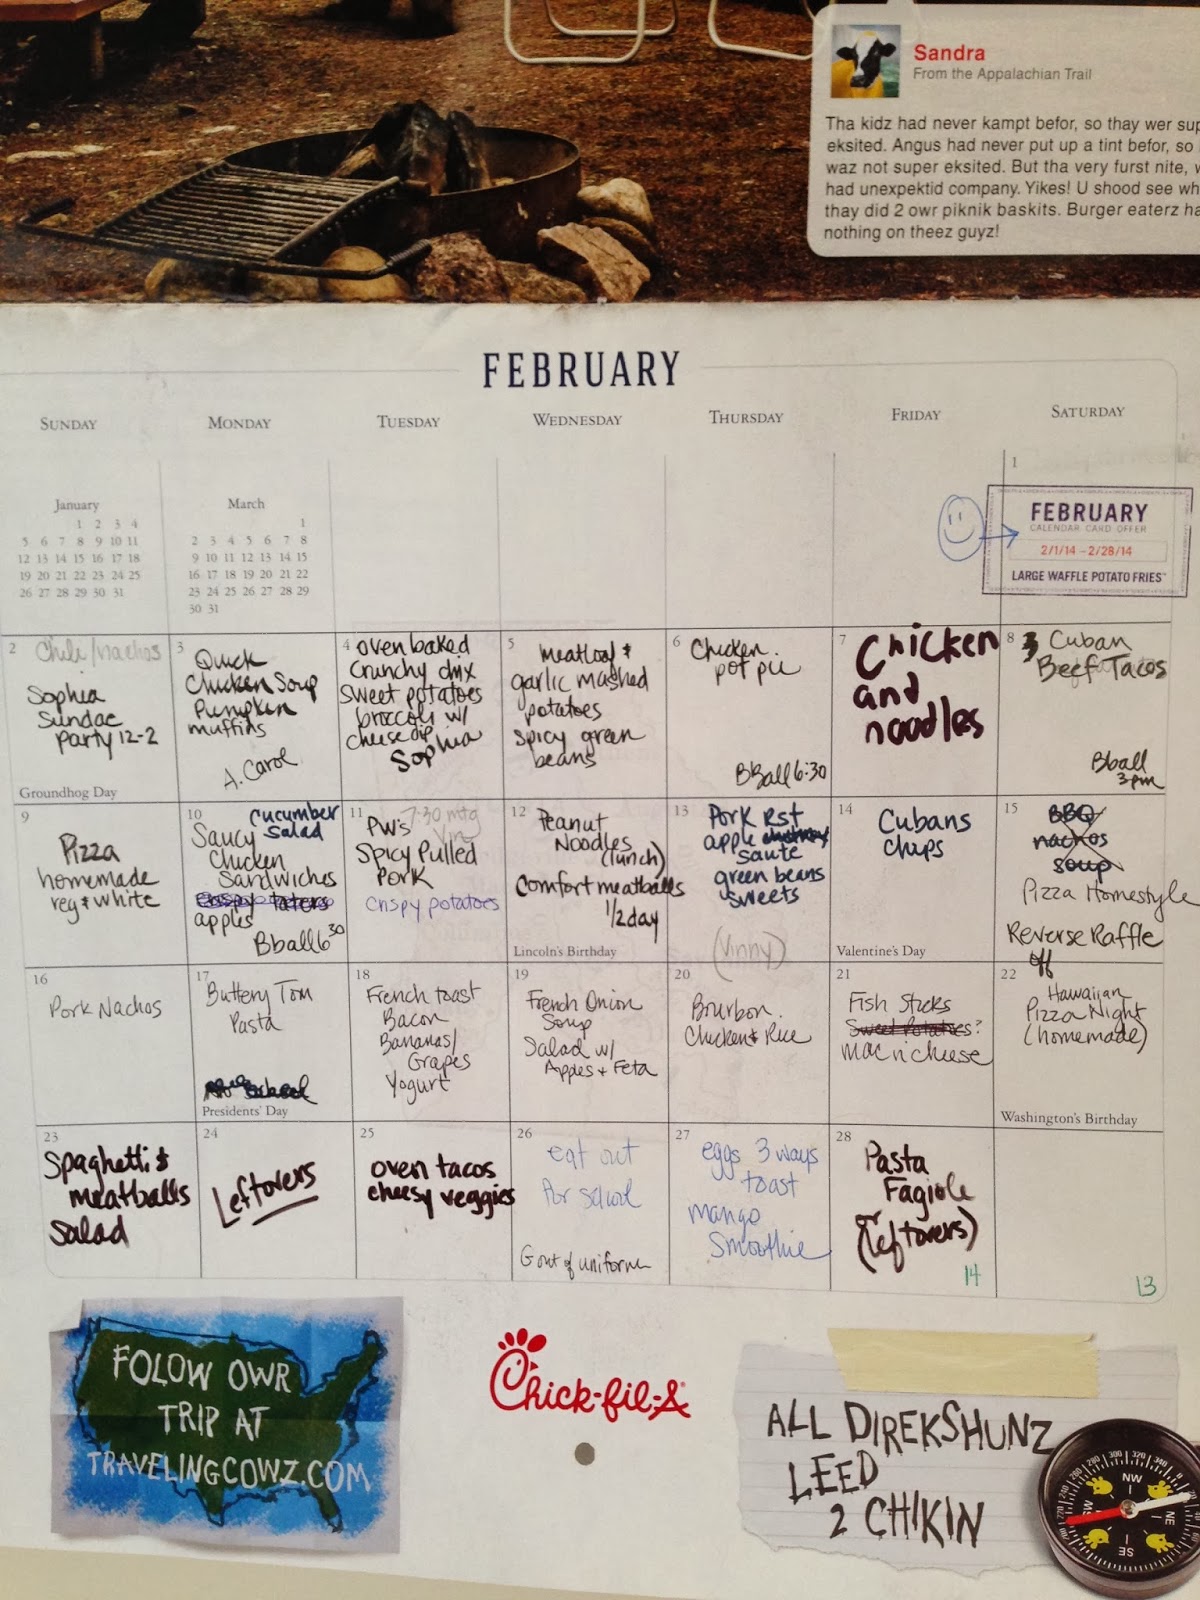 Sandra
From the Appalachian Trail
Tha kidz had never kampt befor, so thay wer sup
eksited. Angus had never put up a tint befor, so
waz not super eksited. But tha very furst nite, w
had unexpektid company. Yikes! U shood see wh
thay did 2 owr piknik baskits. Burger eaterz ha
nothing on theez guyz!
FEBRUARY
SUNDAY MONDAY TUESDAY WEDNESDAY THURSDAY FRIDAY SATURDAY
January
1 2 3 4
5 6 7 8 9 10 11
12 13 14 15 16 17 18
19 20 21 22 23 24 25
26 27 28 29 30 31
March
1
2 3 4 5 6 7 8
9 10 11 12 13 14 15
16 17 18 19 20 21 22
23 24 25 26 27 28 29
30 31
1
FEBRUARY
CALENDAR CARD OFFER
2/1/14 - 2/28/14
LARGE WAFFLE POTATO FRIES™
2
Chili/nachos
Sophia
Sundae
Party 12-2
Groundhog Day
3
Quick
Chicken Soup
Pumpkin
muffins
A. Carol
4
oven baked
crunchy chix
sweet potatoes
broccoli w/
cheese dip
Sophia
5
meatloaf &
garlic mashed
potatoes
spicy green
beans
6
Chicken
pot pie
BBall 6:30
7
Chicken
and
noodles
8
3 Cuban
Beef Tacos
Bball
3pm
9
Pizza
homemade
reg & white
10
cucumber
salad
Saucy
Chicken
Sandwiches
crispy taters
apples
Bball 6:30
11
7:30 mtg
Vin
PW's
Spicy Pulled
Pork
crispy potatoes
12
Peanut
Noodles
(lunch)
Comfort meatballs
1/2 day
Lincoln's Birthday
13
Pork Rst
apple
saute
green beans
sweets
(Vinny)
14
Cubans
chips
Valentine's Day
15
BBQ
nachos
soup
Pizza Homestyle
Reverse Raffle
off
16
Pork Nachos
17
Buttery Tom
Pasta
Presidents' Day
18
French toast
Bacon
Bananas/
Grapes
Yogurt
19
French Onion
Soup
Salad w/
Apples + Feta
20
Bourbon
Chicken & Rice
21
Fish Sticks
Sweet Potatoes?
mac n cheese
22
Hawaiian
Pizza Night
(homemade)
Washington's Birthday
23
Spaghetti &
meatballs
Salad
24
Leftovers
25
oven tacos
cheesy veggies
26
eat out
for school
G out of uniform
27
eggs 3 ways
toast
mango
Smoothie
28
Pasta
Fagiole
(leftovers)
14
13
FOLOW OWR
TRIP AT
TRAVELINGCOWZ.COM
Chick-fil-A
ALL DIREKSHUNZ
LEED
2 CHIKIN
NW
NE
SE
SW